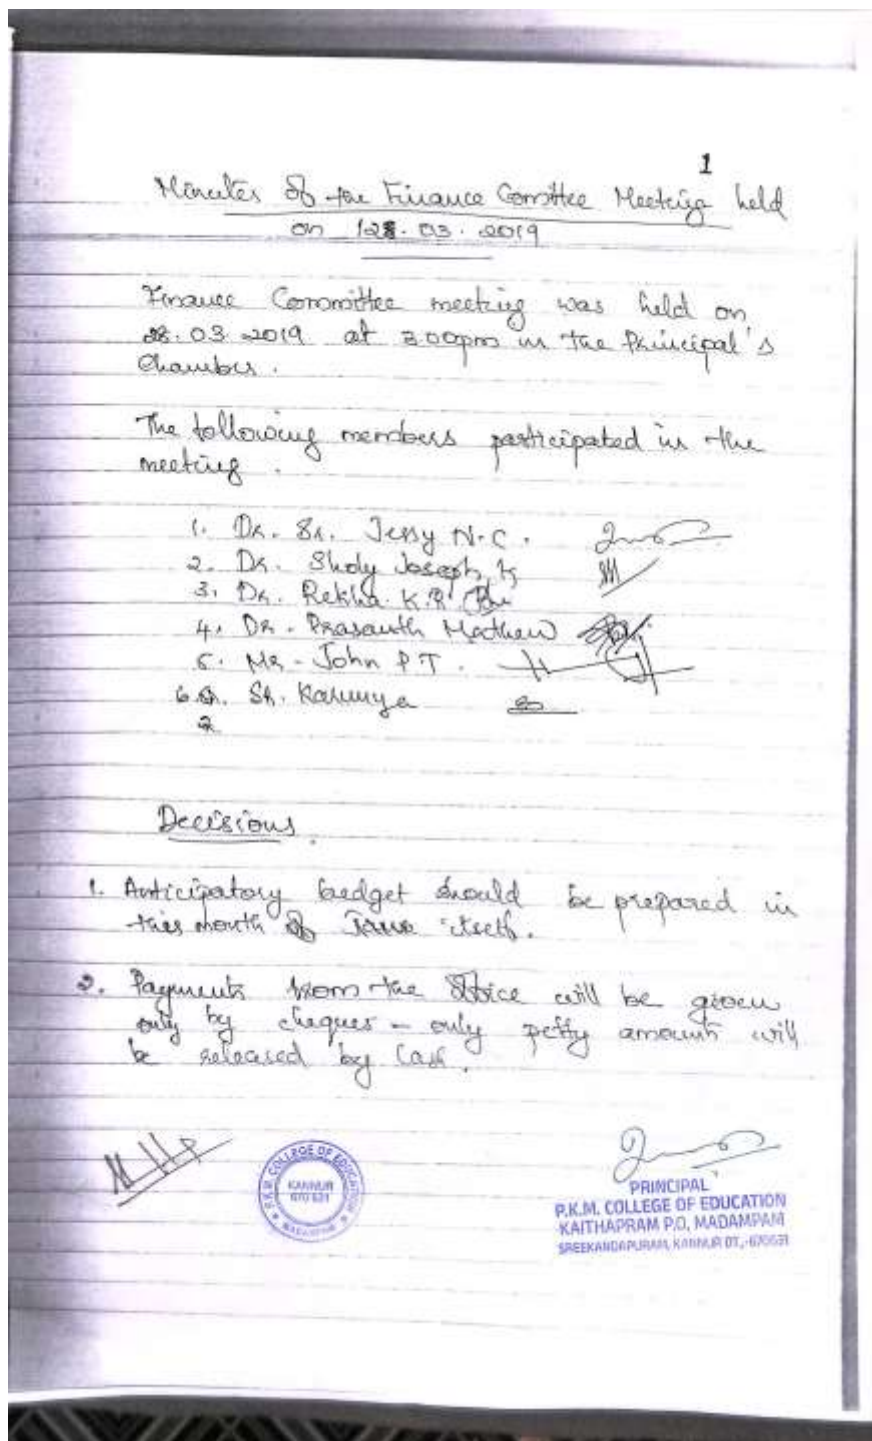 1
Minutes of the Finance Comittee Meeting held
on 28.03.2019
Finance Committee meeting was held on
28.03.2019 at 3.00pm in the Principal's
Chamber.
The following members participated in the
meeting.
1. Dr. Sr. Jessy N.C.
2. Dr. Sholy Joseph K
3. Dr. Rekha K.R
4. Dr. Prasanth Mathew
5. Mr. John P.T.
6. Sr. Karunya
Decisions
1. Anticipatory budget should be prepared in
this month itself.
2. Payments from the office will be given
only by cheques - only petty amounts will
be released by Cash.
P.K.M. COLLEGE OF EDUCATION
KANNUR
670 631
MADAMPAM
PRINCIPAL
P.K.M. COLLEGE OF EDUCATION
KAITHAPRAM P.O, MADAMPAM
SREEKANDAPURAM, KANNUR DT.,-670631